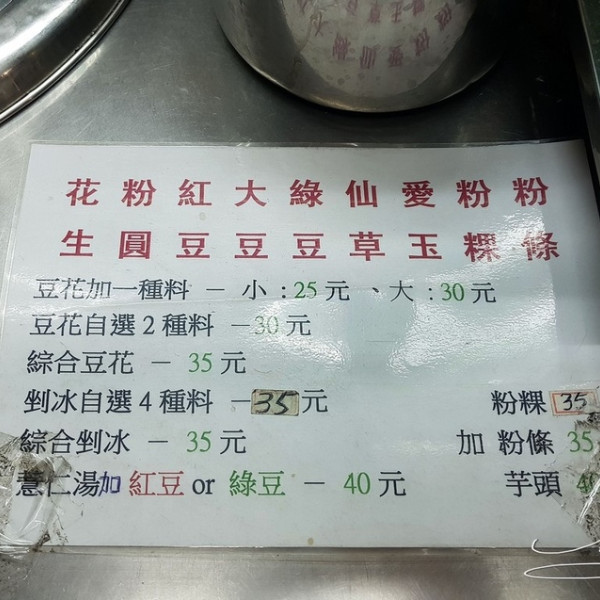 花 粉 紅 大 綠 仙 愛 粉 粉
生 圓 豆 豆 豆 草 玉 粿 條
豆花加一種料 － 小 : 25 元 、大 : 30 元
豆花自選 2 種料 －30 元
綜合豆花 － 35 元
剉冰自選 4 種料 －35 元 粉粿 35
綜合剉冰 － 35 元 加 粉條 35
薏仁湯加 紅豆 or 綠豆 － 40 元 芋頭